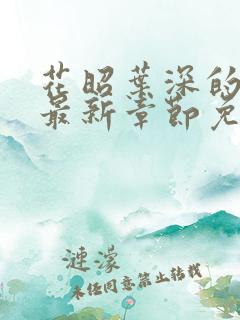 花昭葉深的
最新章節免
漣濛
未经同意禁止转载